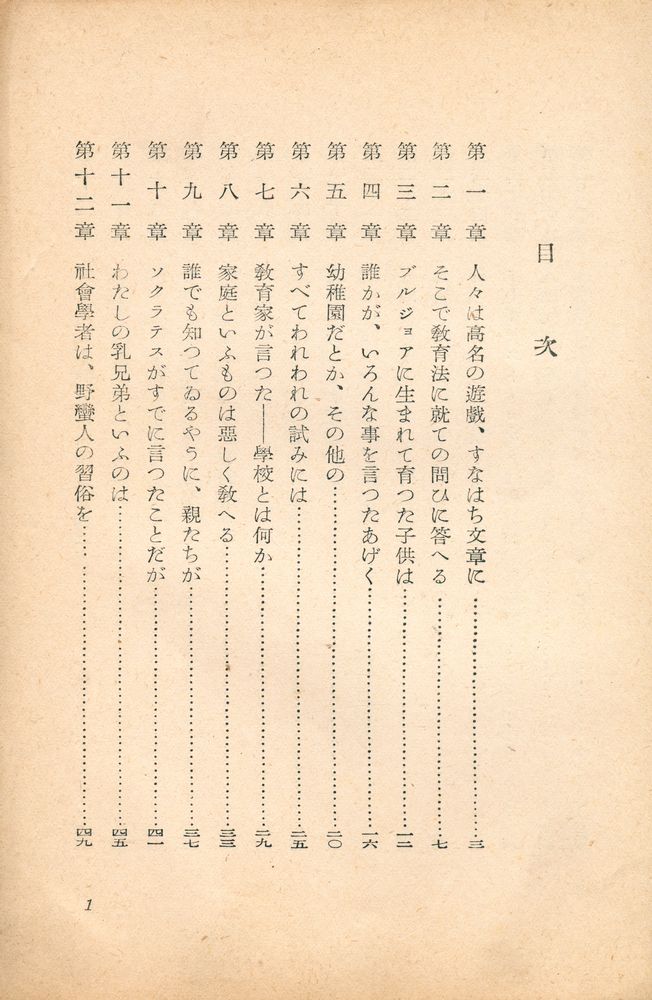 目次
第一章 人々は高名の遊戯、すなはち文章に…………三
第二章 そこで教育法に就ての問ひに答へる…………七
第三章 ブルジョアに生まれて育つた子供は…………一二
第四章 誰かが、いろんな事を言つたあげく…………一六
第五章 幼稚園だとか、その他の…………二〇
第六章 すべてわれわれの試みには…………二五
第七章 教育家が言つた――學校とは何か…………二九
第八章 家庭といふものは惡しく教へる…………三三
第九章 誰でも知つてゐるやうに、親たちが…………三七
第十章 ソクラテスがすでに言つたことだが…………四一
第十一章 わたしの乳兄弟といふのは…………四五
第十二章 社會學者は、野蠻人の習俗を…………四九
1